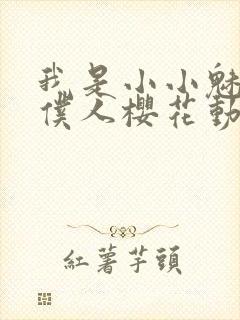 我是小小魅
僕人櫻花動
紅薯芋頭